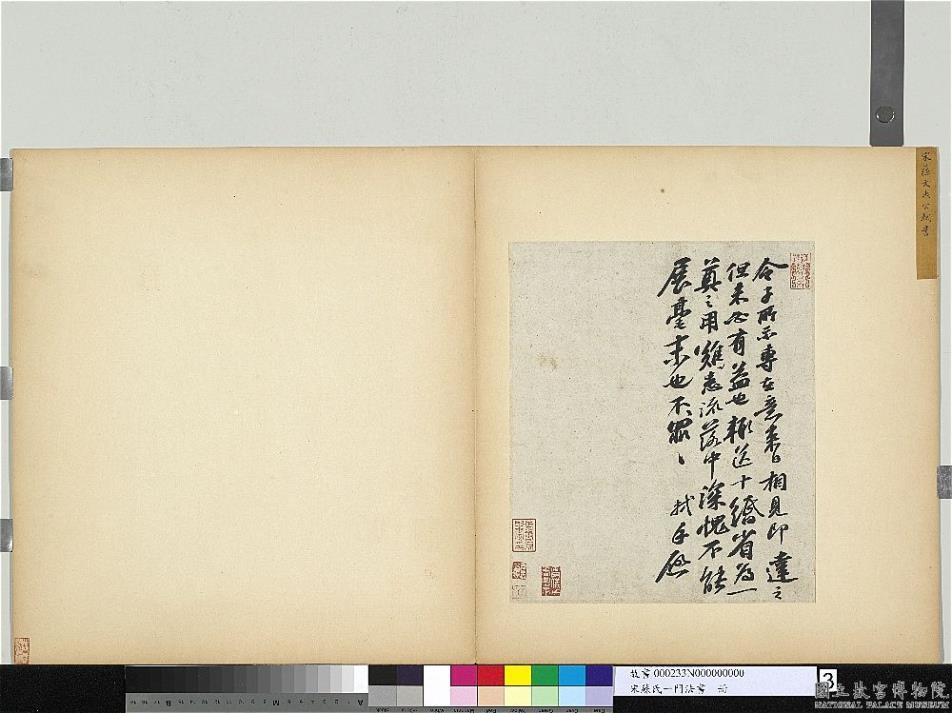 宋蘇文忠公軾書
令子所示專在意來日相見即達之
但未必有益也輒送十縑省為一
奠之用難患流落中深愧不能
展毫末也不罪〻 軾手啟
故書 000233N000000000
宋蘇氏一門法書 冊
3
國立故宮博物院
NATIONAL PALACE MUSEUM